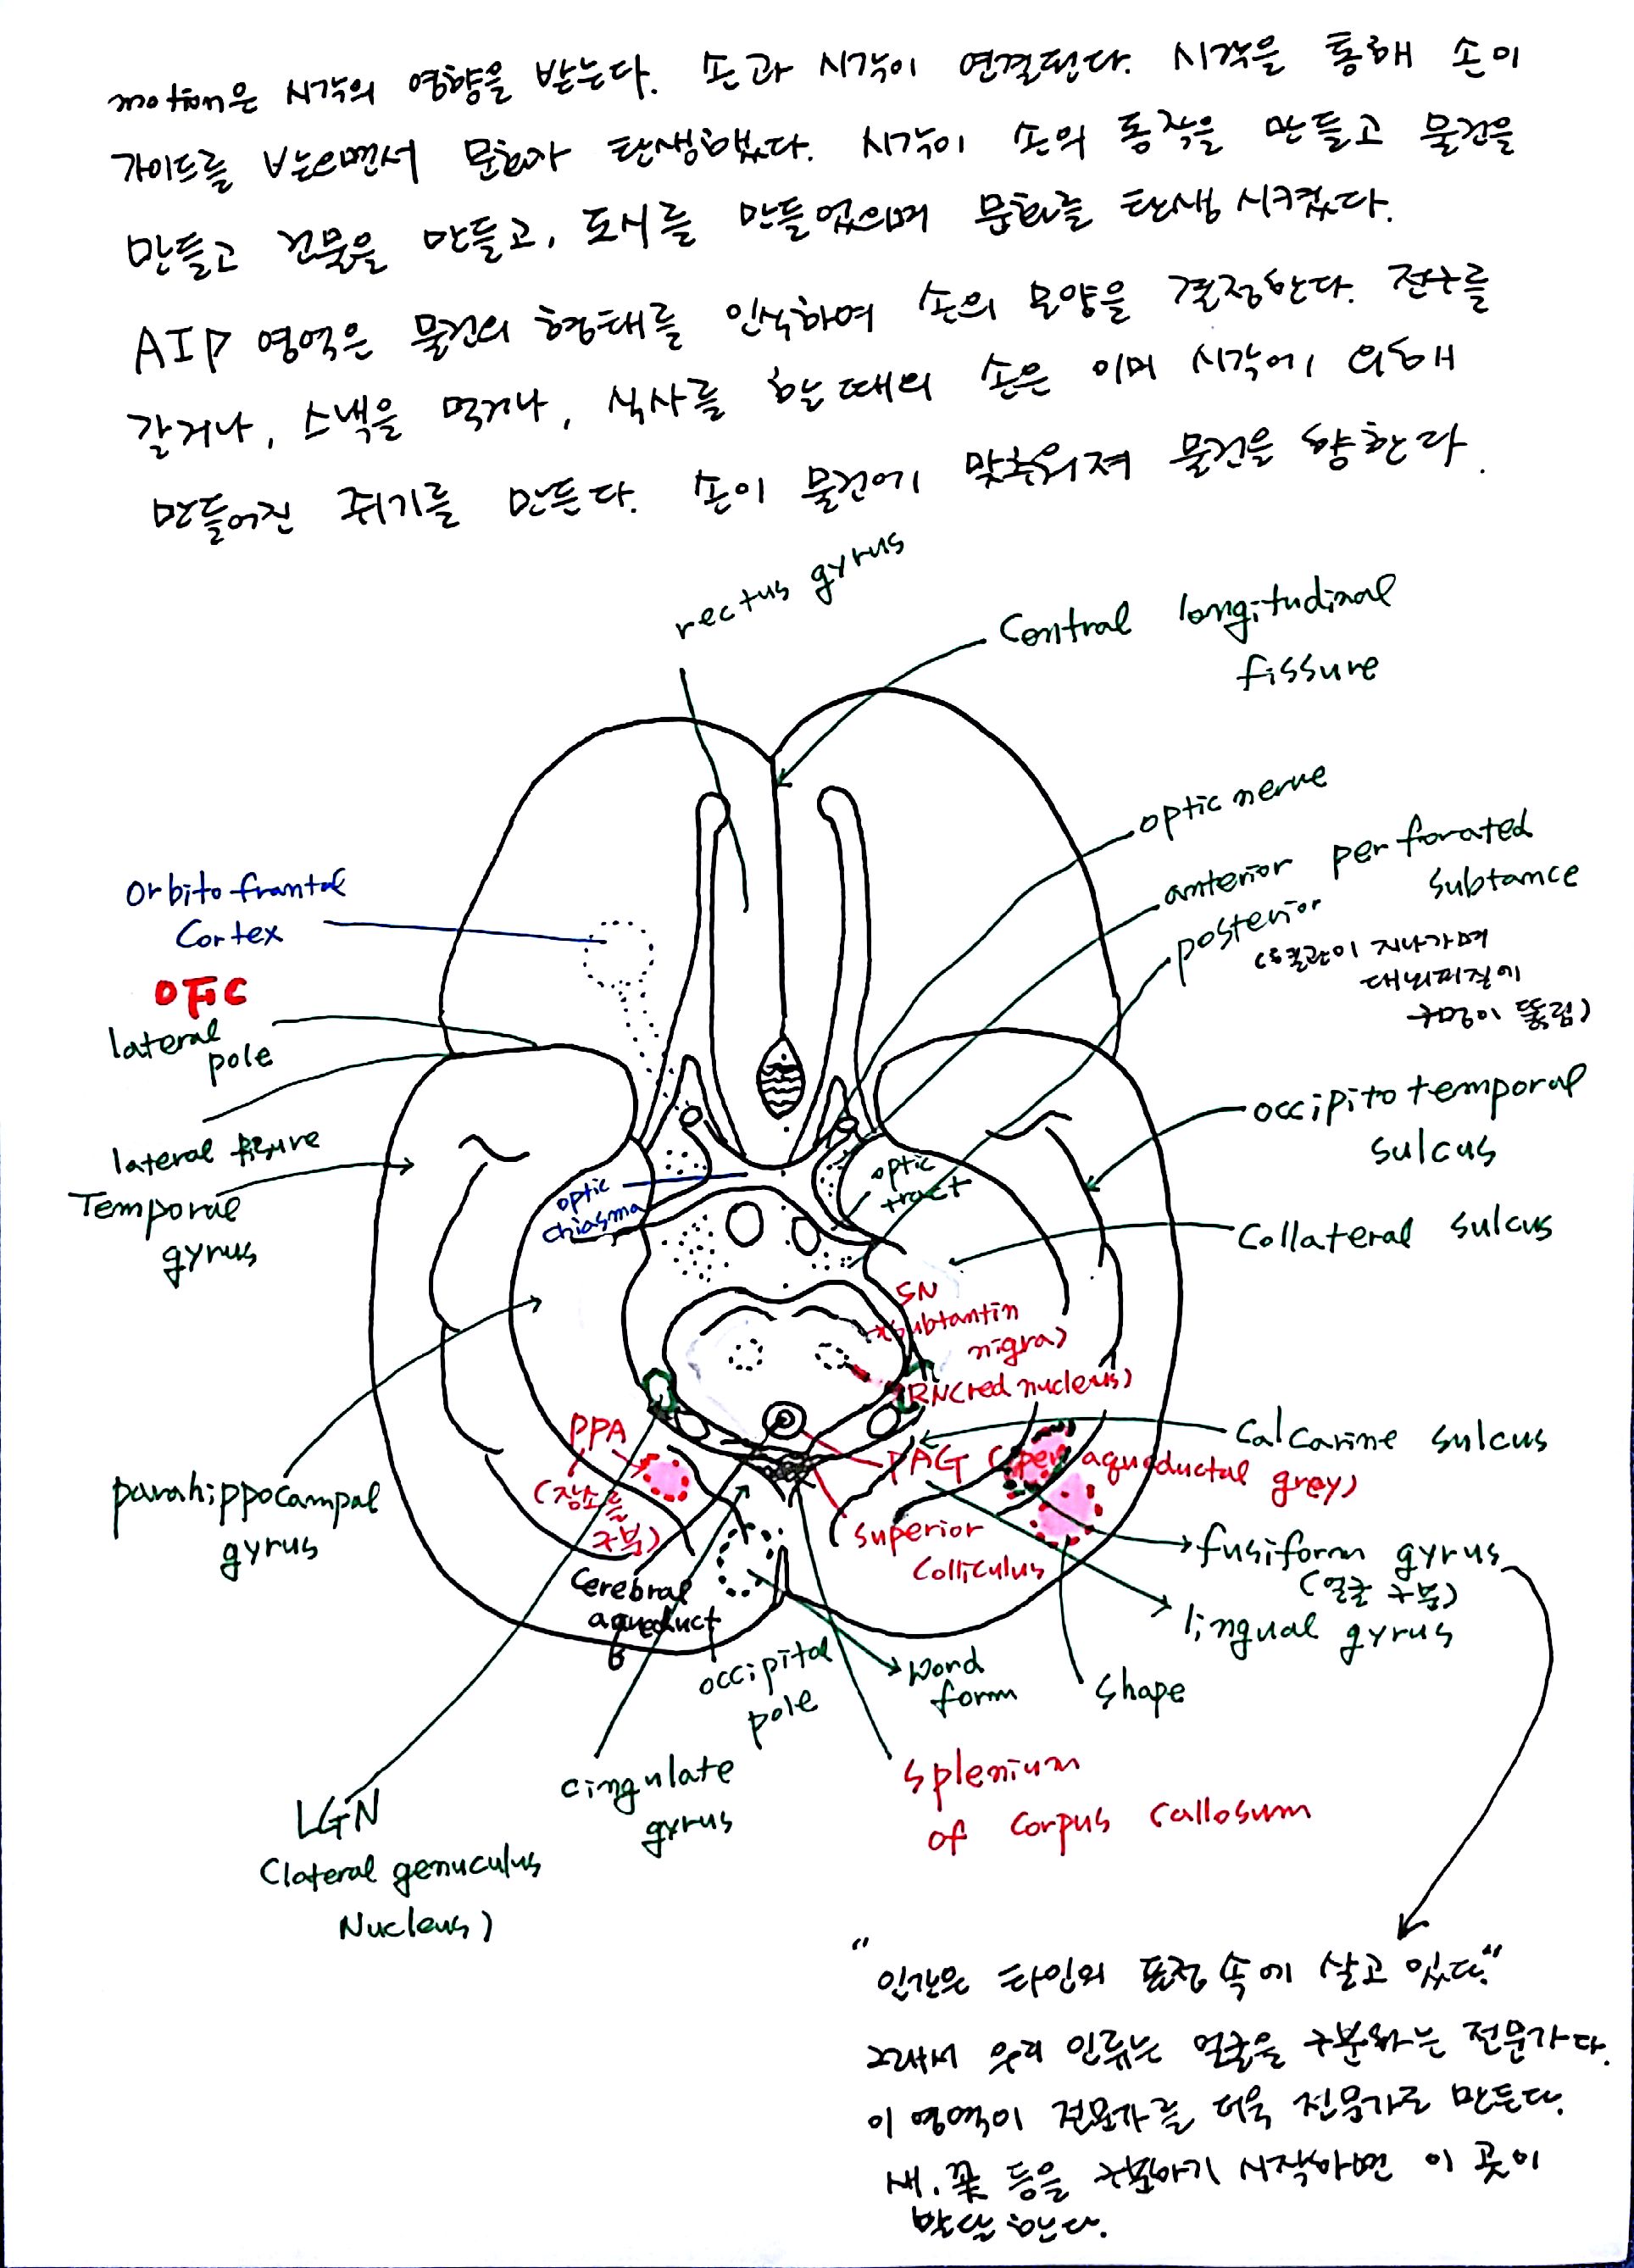 motion은 시각의 영향을 받는다. 손과 시각이 연결된다. 시각을 통해 손이
가이드를 받으면서 문화가 탄생했다. 시각이 손의 동작을 만들고 물건을
만들고 건물을 만들고, 도시를 만들었으며 문화를 탄생시켰다.
AIP 영역은 물건의 형태를 인식하여 손의 모양을 결정한다. 전구를
갈거나, 스낵을 먹거나, 식사를 할 때의 손은 이미 시각에 의해
만들어진 쥐기를 만든다. 손이 물건에 맞추워져 물건을 향한다.
rectus gyrus
Central longitudinal
fissure
optic nerve
anterior perforated
subtance
posterior
(혈관이 지나가며
대뇌피질에
구멍이 뚫림)
Orbito frontal
Cortex
OFC
lateral
pole
lateral fisure
Temporal
gyrus
occipito temporal
sulcus
optic
chiasma
optic
tract
Collateral sulcus
SN
(subtantin
nigra)
RN(red nucleus)
PPA
(장소를
구분)
Calcarine sulcus
PAG (peri aqueductal grey)
parahippocampal
gyrus
Superior
Colliculus
fusiform gyrus
(얼굴 구분)
lingual gyrus
Cerebral
aqueduct
occipital
pole
word
form
shape
cingulate
gyrus
Splenium
of Corpus Callosum
LGN
(lateral genuculus
Nucleus)
"인간은 타인의 표정 속에 살고 있다."
그래서 우리 인류는 얼굴을 구분하는 전문가다.
이 영역이 전문가를 더욱 전문가로 만든다.
새, 꽃 등을 구분하기 시작하면 이 곳이
발달한다.